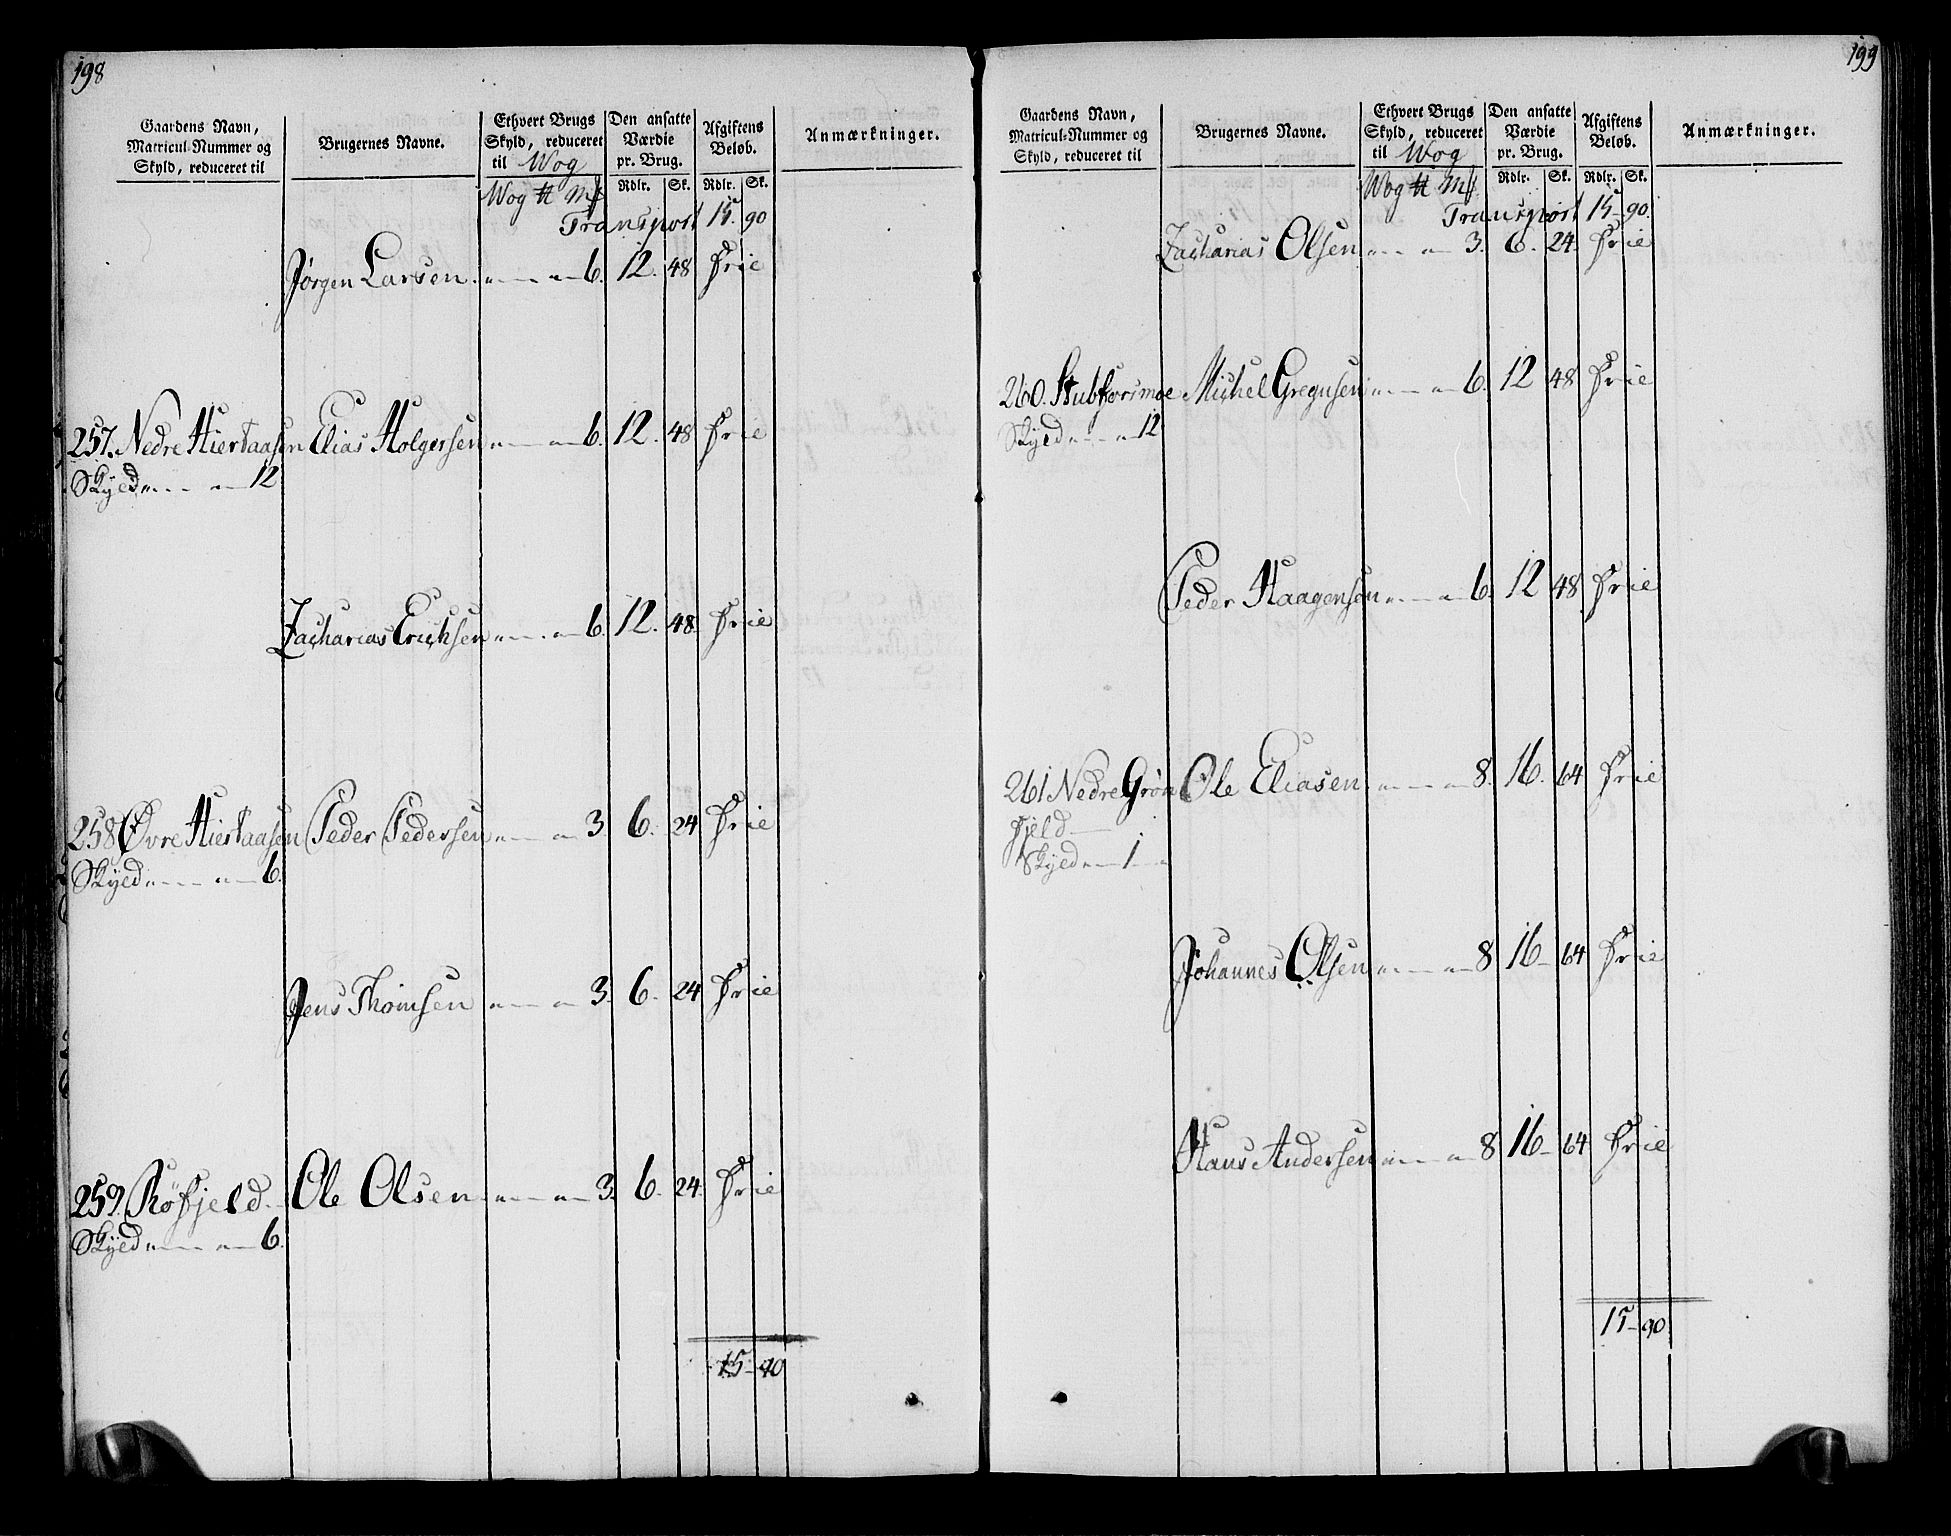 198
Gaardens Navn, Matricul-Nummer og Skyld, reduceret til
Brugernes Navne.
Ethvert Brugs Skyld, reduceret til Wog
Den ansatte Værdie pr. Brug.
Afgiftens Beløb.
Anmærkninger.
Wog ℔ Mk Rdlr. Sk. Rdlr. Sk.
Transport 15 90
Jørgen Larsen . " — " — 6. 12. 48 Frie
257. Nedre Hiertaasen Elias Holgersen " — " — 6. 12. 48 Frie
Skyld " — " — 12
Zacharias Erichsen " — " — 6. 12. 48 Frie
258 Øvre Hiertaasen Peder Pedersen " — " — 3 6. 24 Frie
Skyld " — " — 6.
Jens Thomsen " — " — 3. 6. 24 Frie
259. Röfjeld. Ole Olsen " — " — 3. 6. 24. Frie
Skyld " — " — 6.
15 — 90
199
Gaardens Navn, Matricul-Nummer og Skyld, reduceret til
Brugernes Navne.
Ethvert Brugs Skyld, reduceret til Wog
Den ansatte Værdie pr. Brug.
Afgiftens Beløb.
Anmærkninger.
Wog ℔ Mk Rdlr. Sk. Rdlr. Sk.
Transport 15 — 90.
Zacharias Olsen " — " — 3. 6. 24. Frie
260. Stubforsmoe Michel Gregusen " — " — 6. 12 48 Frie
Skyld " — " 12
Peder Haagensen " — " — 6. 12 48 Frie
261 Nedre Grøn Ole Eliasen " — " — 8. 16. 64 Frie
fjeld
Skyld " — 1 — "
Johannes Olsen " — " — 8 16 — 64 Frie
Hans Andersen " — " — 8 16 — 64 Frie
15 — 90